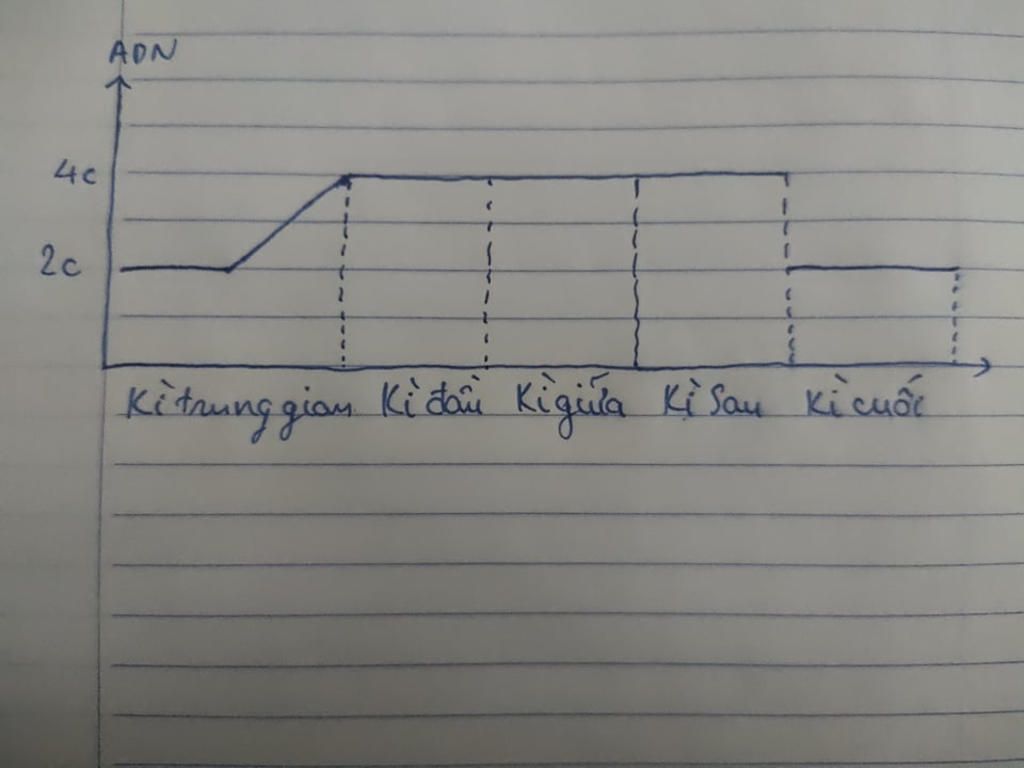 ADN
4c
2c
Kì trung gian Kì đầu Kì giữa Kì Sau Kì cuối